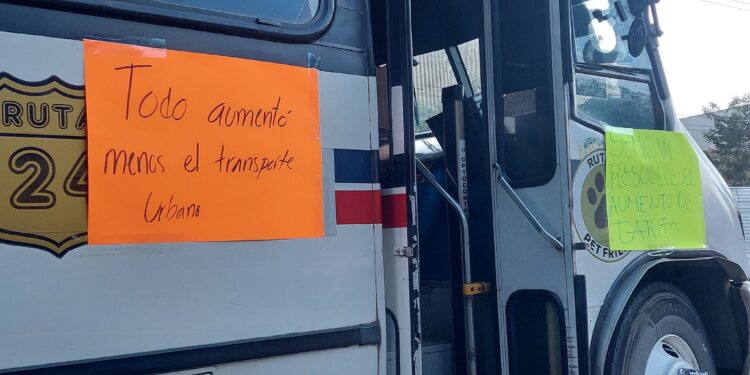 RUTA
24
Todo aumentó
menos el transporte
Urbano
RUTA
PET FRIE
RESUELVE EL
AUMENTO DE
TARIFA